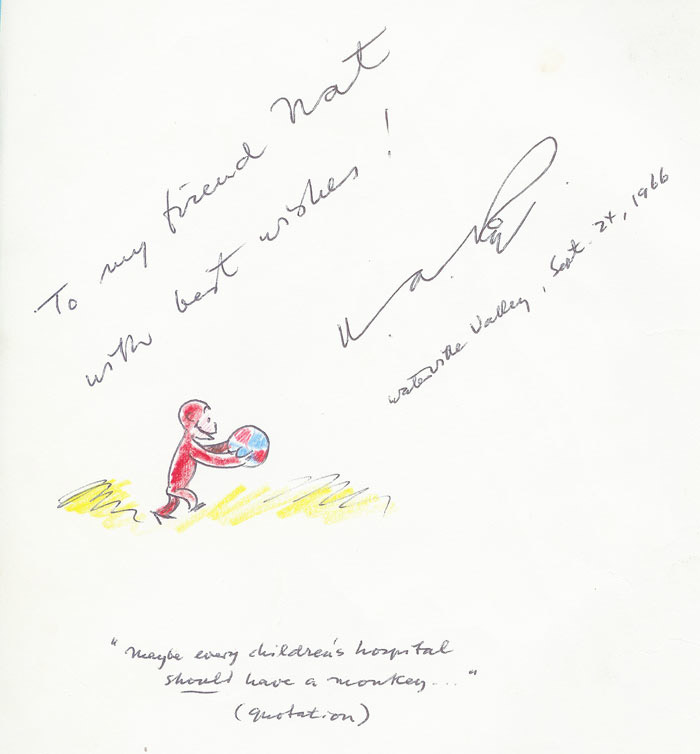 To my friend Nat
with best wishes!
H. A. Rey
Waterville Valley, Sept. 24, 1966
"Maybe every children's hospital
should have a monkey..."
(quotation)